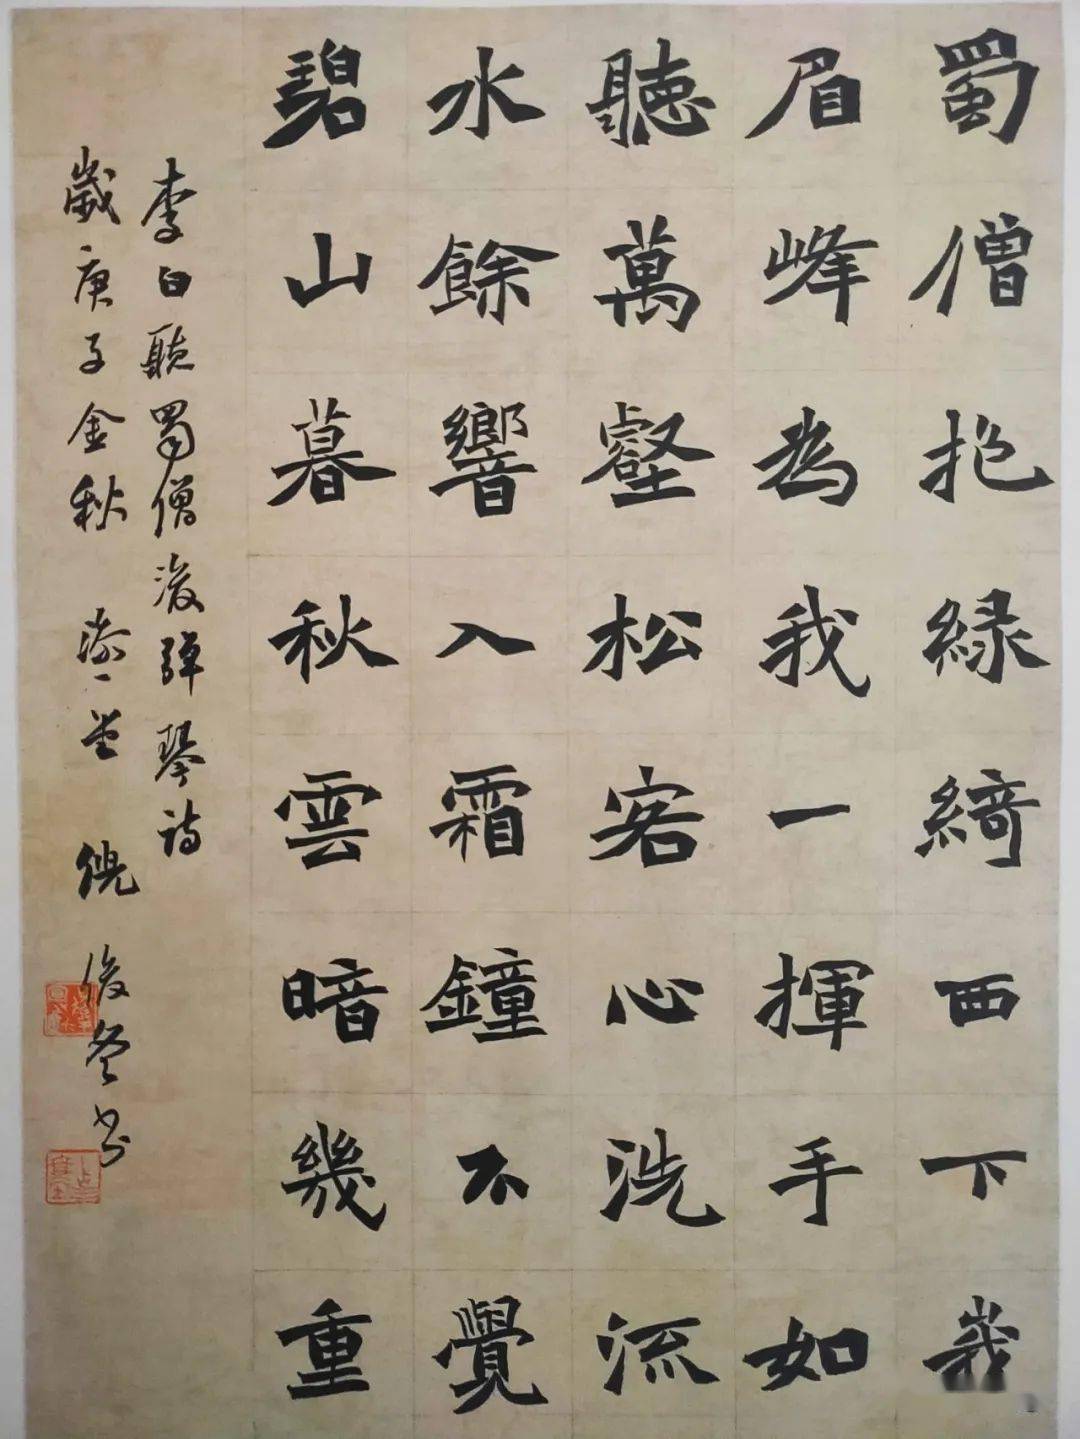 蜀僧抱緑綺西下峩
眉峰為我一揮手如
聽萬壑松客心洗流
水餘響入霜鐘不覺
碧山暮秋雲暗幾重
李白聽蜀僧濬彈琴詩
歲庚子金秋 一堂 倪 书